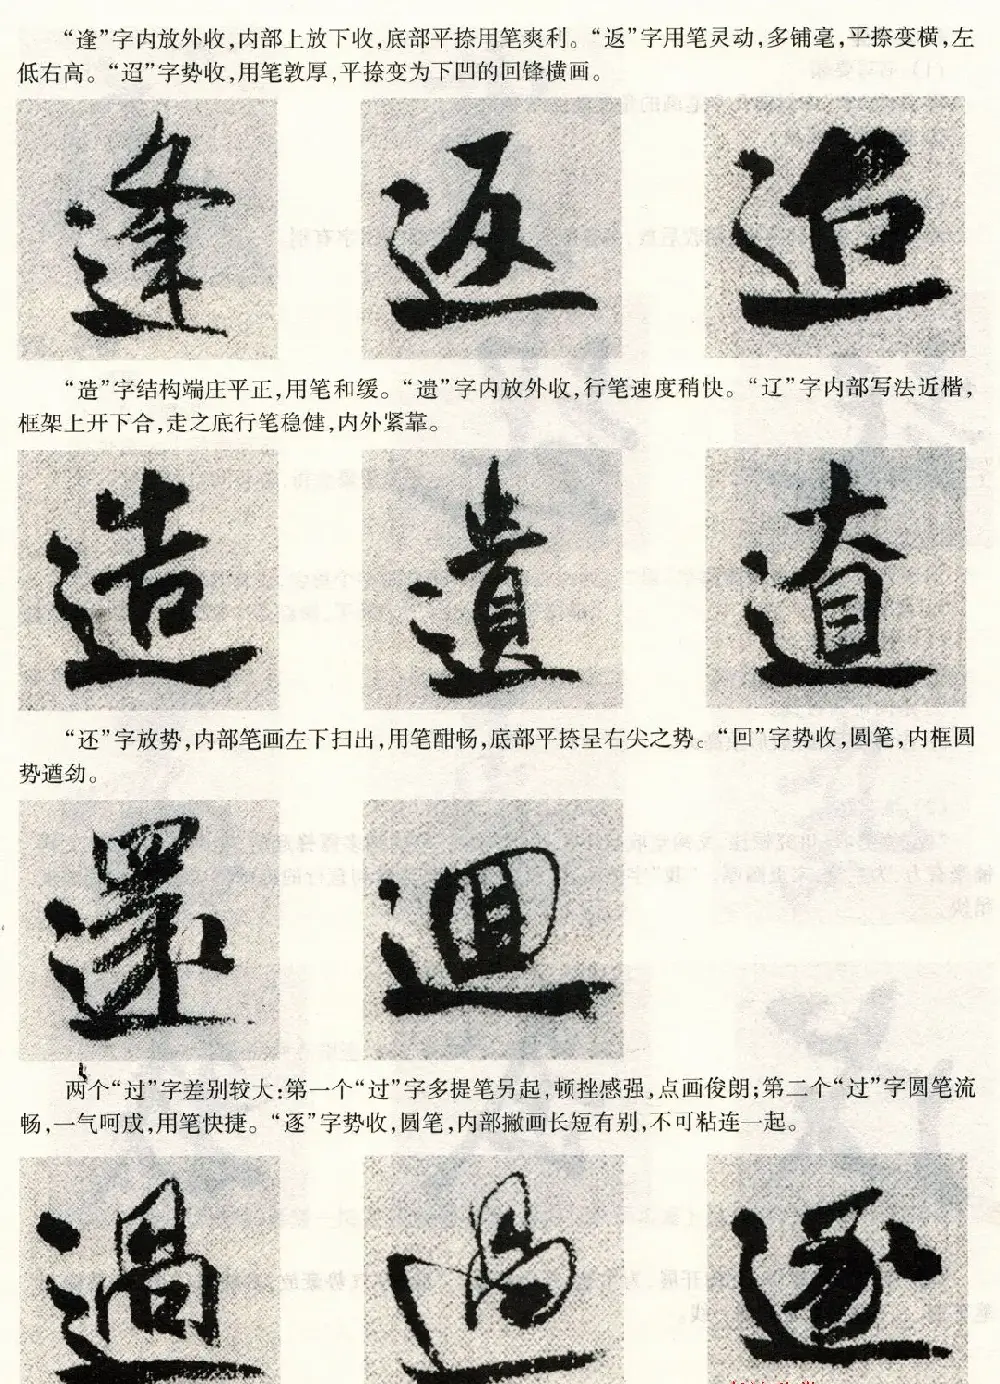 “逢”字内放外收，内部上放下收，底部平捺用笔爽利。“返”字用笔灵动，多铺毫，平捺变横，左
低右高。“迢”字势收，用笔敦厚，平捺变为下凹的回锋横画。
逢 返 迢
“造”字结构端庄平正，用笔和缓。“遗”字内放外收，行笔速度稍快。“辽”字内部写法近楷，
框架上开下合，走之底行笔稳健，内外紧靠。
造 遺 遼
“还”字放势，内部笔画左下扫出，用笔酣畅，底部平捺呈右尖之势。“回”字势收，圆笔，内框圆
势遒劲。
還 迴
两个“过”字差别较大：第一个“过”字多提笔另起，顿挫感强，点画俊朗；第二个“过”字圆笔流
畅，一气呵成，用笔快捷。“逐”字势收，圆笔，内部撇画长短有别，不可粘连一起。
過 過 逐